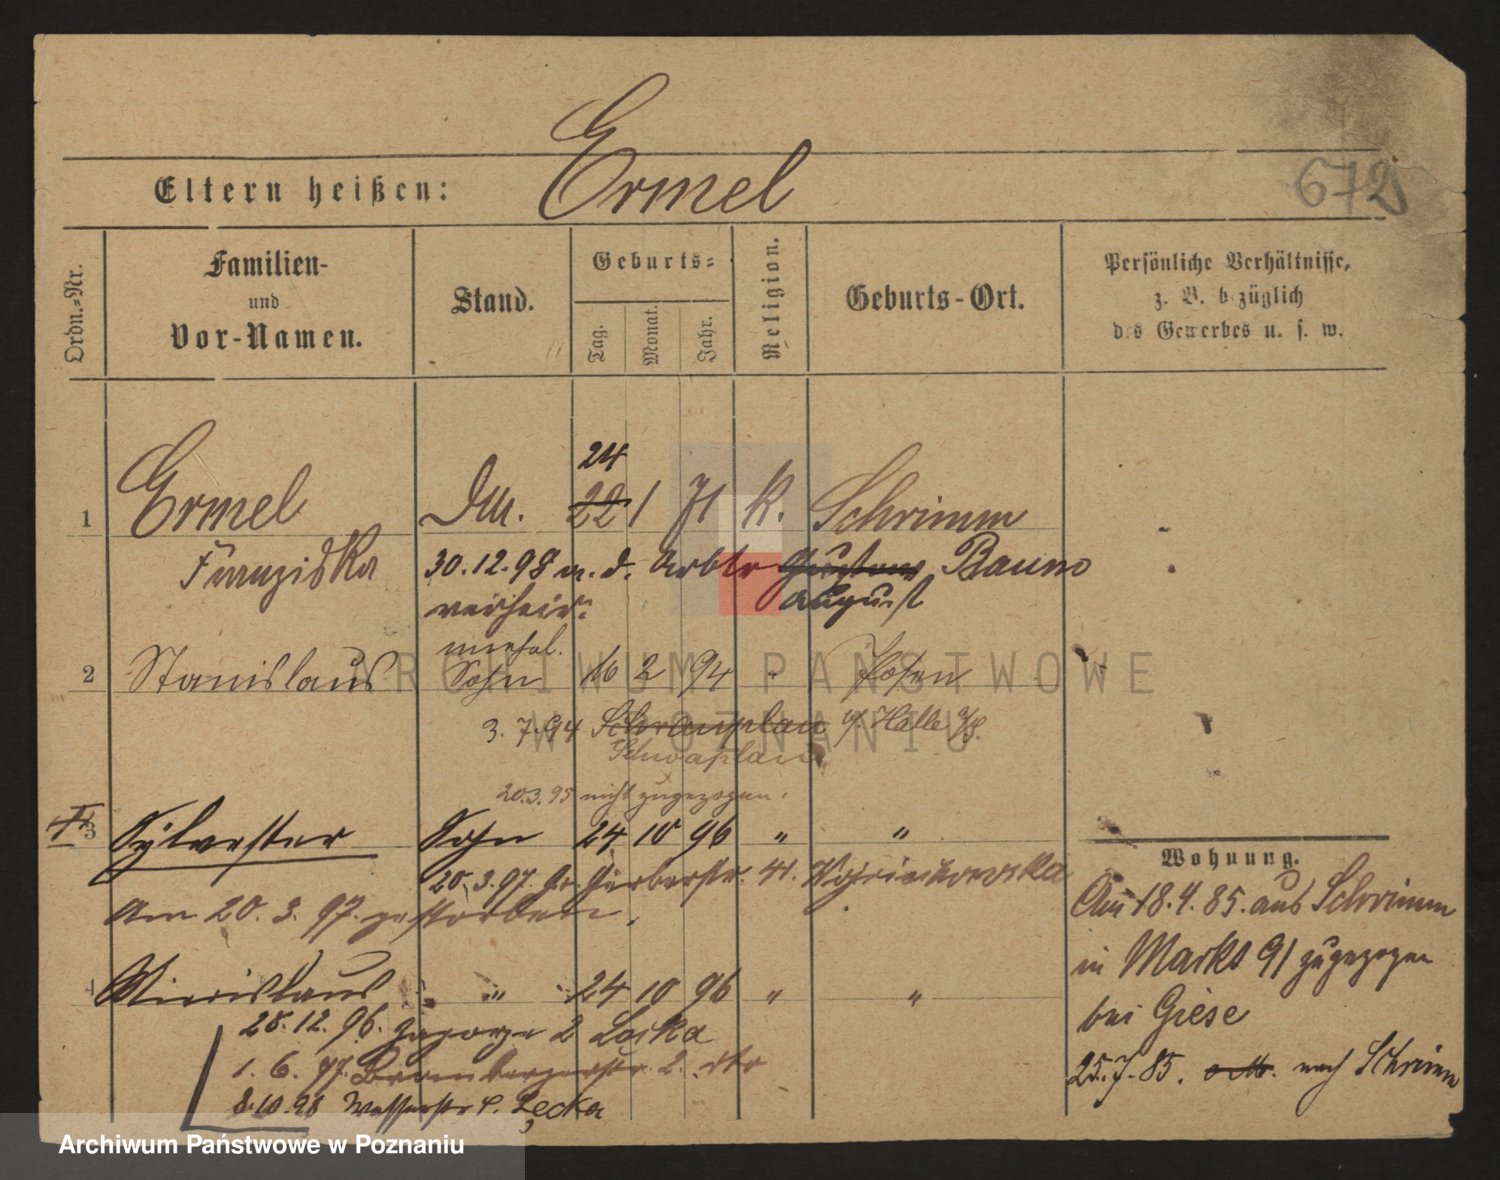 Ermel
Eltern heißen:
672
Ordn.-Nr.
Familien-
und
Vor-Namen.
Stand.
Geburts-
Tag.
Monat.
Jahr.
Religion.
Geburts-Ort.
Persönliche Verhältnisse,
z. B. bezüglich
des Gewerbes u. s. w.
24
1 Ermel 22 1 71 k. Schrimm
Franziska 30.12.98 m. d. Arbtr Gustav Baum
verheir. August
unehel.
2 Stanislaus Sohn 16 2 94 " Posen
3. 7. 94 Halle a/S.
20.3.95 nicht zugezogen.
3 Sylvester Sohn 24 10 96 " "
20.3.97. Gr. Gerberstr. 41.
Am 20. 3. 97. gestorben.
4 " 24 10 96 " "
28.12.96. gezogen 2
1. 6. 97. 2. dto
8.10.98 Wasserstr
Wohnung.
Am 18.4.85. aus Schrimm
in Markt 91 zugezogen
bei Giese
25.7.85. nach Schrimm
ARCHIWUM PAŃSTWOWE
W POZNANIU
Archiwum Państwowe w Poznaniu